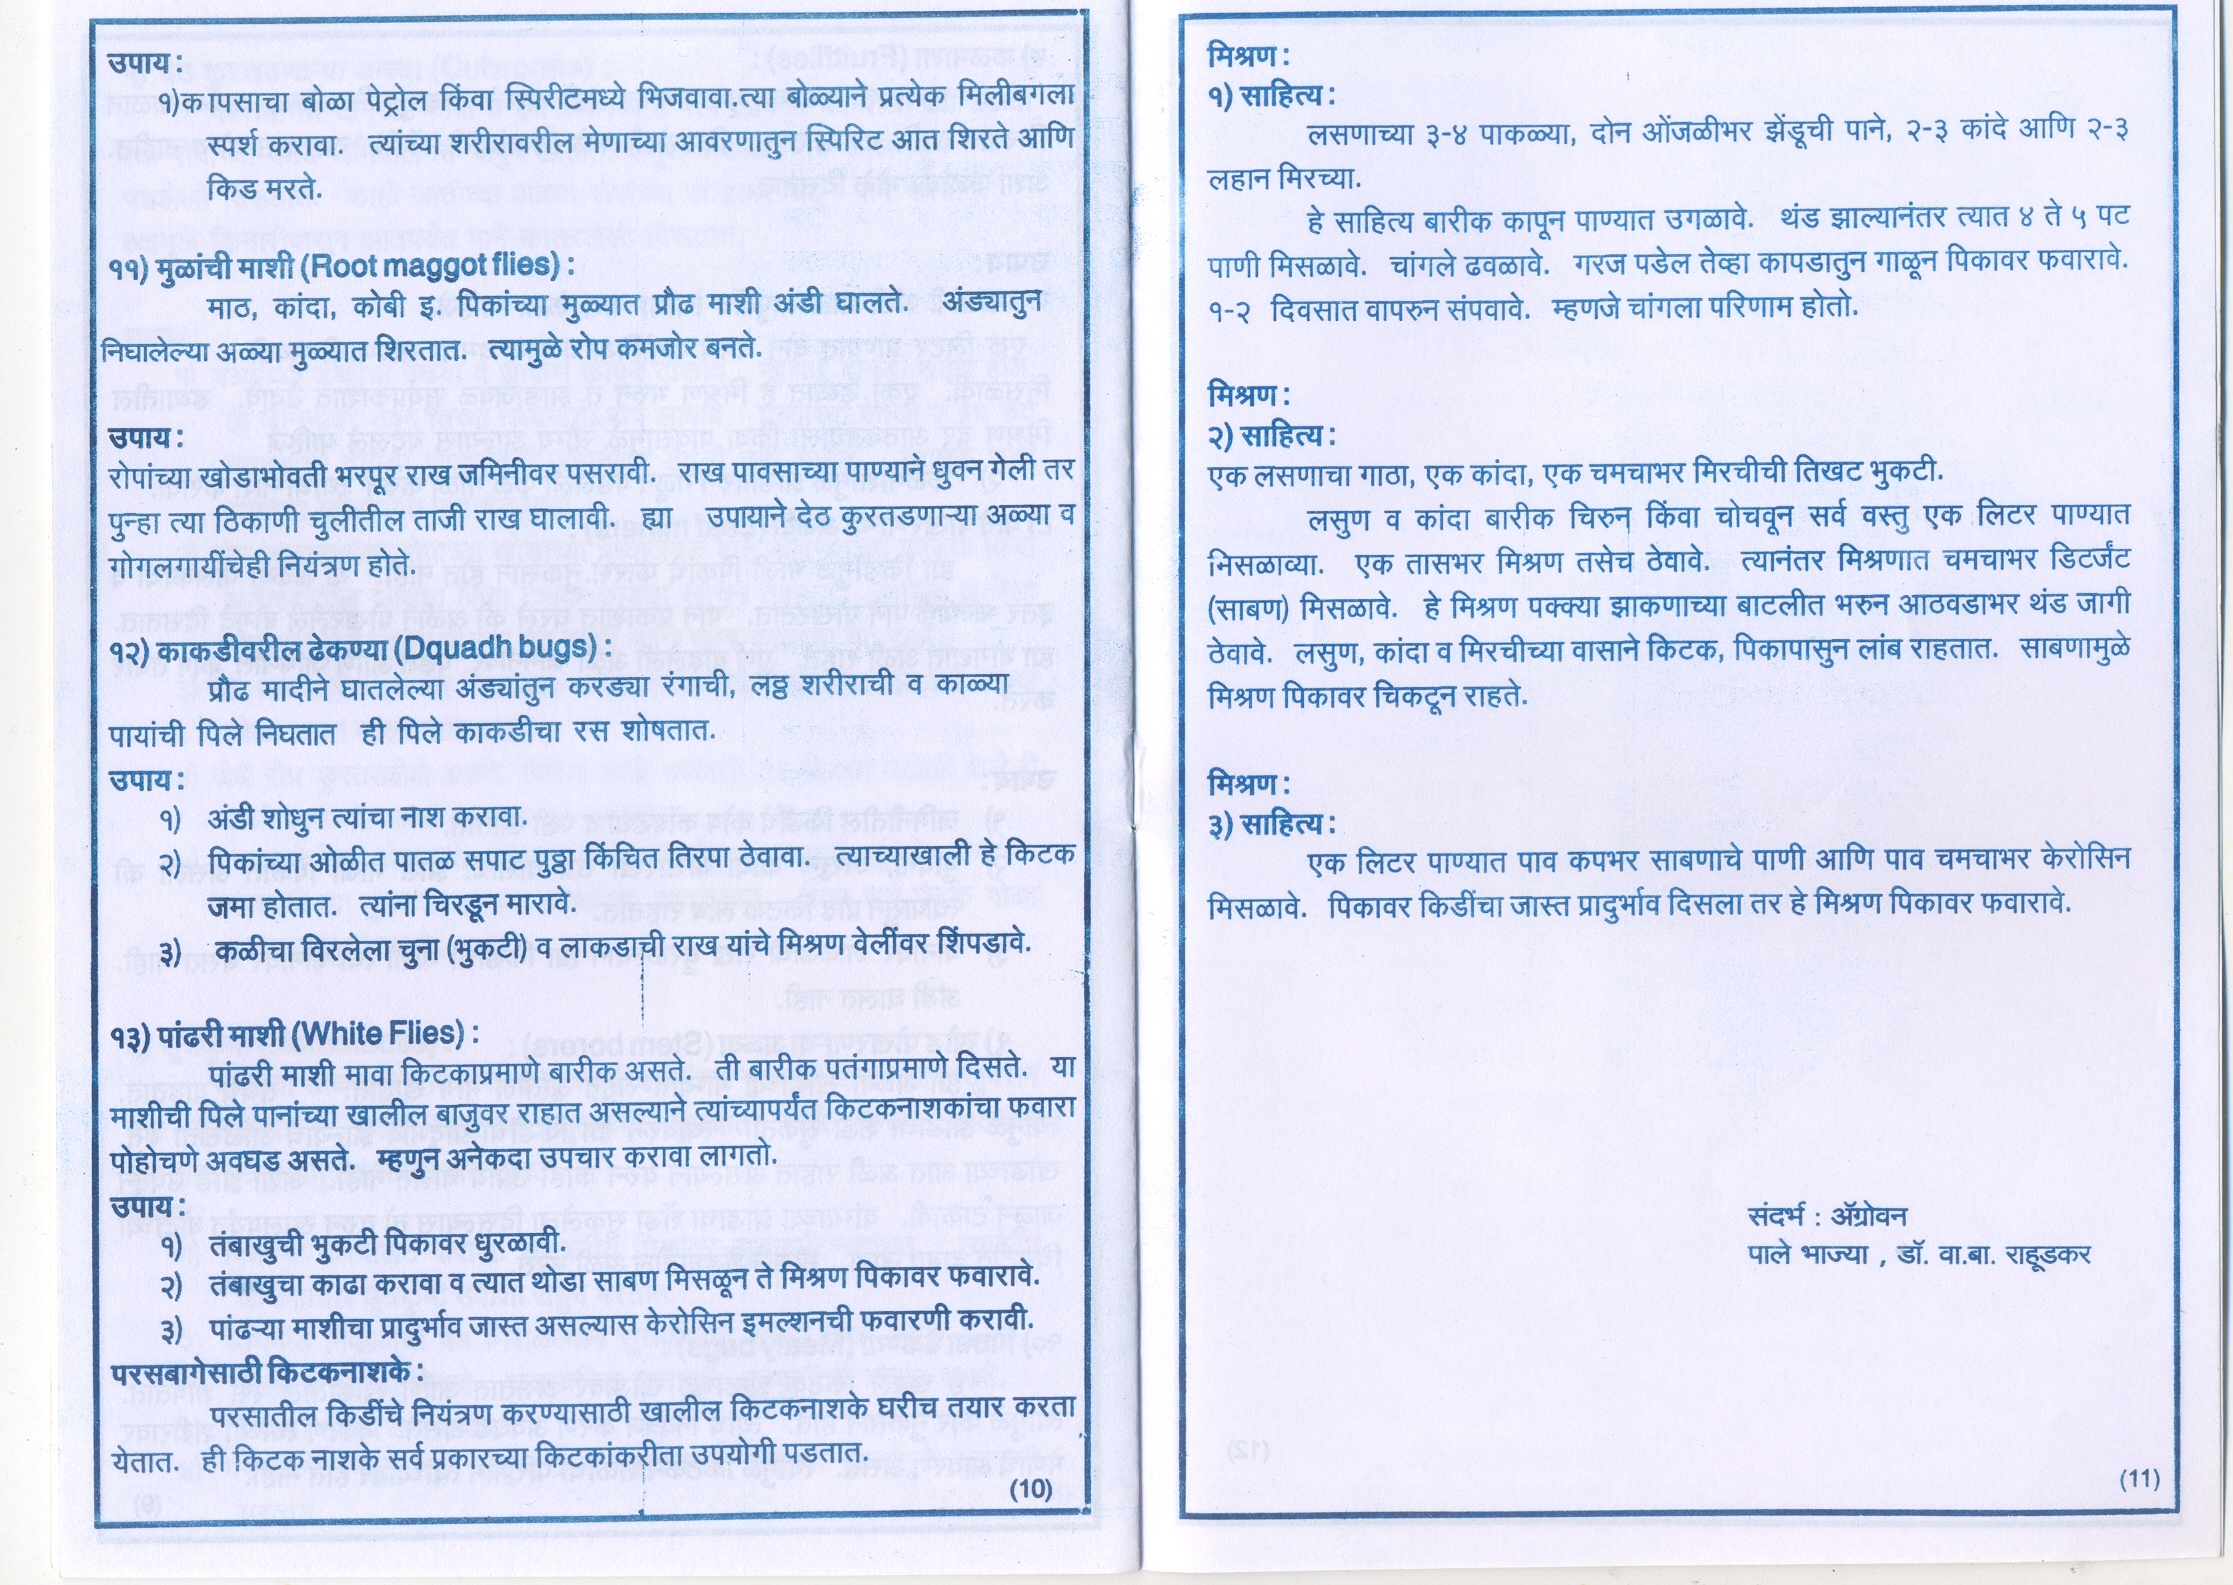 उपाय :
१)कापसाचा बोळा पेट्रोल किंवा स्पिरीटमध्ये भिजवावा.त्या बोळ्याने प्रत्येक मिलीबगला
स्पर्श करावा. त्यांच्या शरीरावरील मेणाच्या आवरणातुन स्पिरिट आत शिरते आणि
किड मरते.
११) मुळांची माशी (Root maggot flies) :
माठ, कांदा, कोबी इ. पिकांच्या मुळ्यात प्रौढ माशी अंडी घालते. अंड्यातुन
निघालेल्या अळ्या मुळ्यात शिरतात. त्यामुळे रोप कमजोर बनते.
उपाय :
रोपांच्या खोडाभोवती भरपूर राख जमिनीवर पसरावी. राख पावसाच्या पाण्याने धुवन गेली तर
पुन्हा त्या ठिकाणी चुलीतील ताजी राख घालावी. ह्या उपायाने देठ कुरतडणाऱ्या अळ्या व
गोगलगायींचेही नियंत्रण होते.
१२) काकडीवरील ढेकण्या (Dquadh bugs) :
प्रौढ मादीने घातलेल्या अंड्यांतुन करड्या रंगाची, लठ्ठ शरीराची व काळ्या
पायांची पिले निघतात ही पिले काकडीचा रस शोषतात.
उपाय :
१) अंडी शोधुन त्यांचा नाश करावा.
२) पिकांच्या ओळीत पातळ सपाट पुठ्ठा किंचित तिरपा ठेवावा. त्याच्याखाली हे किटक
जमा होतात. त्यांना चिरडून मारावे.
३) कळीचा विरलेला चुना (भुकटी) व लाकडाची राख यांचे मिश्रण वेलींवर शिंपडावे.
१३) पांढरी माशी (White Flies) :
पांढरी माशी मावा किटकाप्रमाणे बारीक असते. ती बारीक पतंगाप्रमाणे दिसते. या
माशीची पिले पानांच्या खालील बाजुवर राहात असल्याने त्यांच्यापर्यंत किटकनाशकांचा फवारा
पोहोचणे अवघड असते. म्हणुन अनेकदा उपचार करावा लागतो.
उपाय :
१) तंबाखुची भुकटी पिकावर धुरळावी.
२) तंबाखुचा काढा करावा व त्यात थोडा साबण मिसळून ते मिश्रण पिकावर फवारावे.
३) पांढऱ्या माशीचा प्रादुर्भाव जास्त असल्यास केरोसिन इमल्शनची फवारणी करावी.
परसबागेसाठी किटकनाशके :
परसातील किडींचे नियंत्रण करण्यासाठी खालील किटकनाशके घरीच तयार करता
येतात. ही किटक नाशके सर्व प्रकारच्या किटकांकरीता उपयोगी पडतात.
(10)
मिश्रण :
१) साहित्य :
लसणाच्या ३-४ पाकळ्या, दोन ओंजळीभर झेंडूची पाने, २-३ कांदे आणि २-३
लहान मिरच्या.
हे साहित्य बारीक कापून पाण्यात उगळावे. थंड झाल्यानंतर त्यात ४ ते ५ पट
पाणी मिसळावे. चांगले ढवळावे. गरज पडेल तेव्हा कापडातुन गाळून पिकावर फवारावे.
१-२ दिवसात वापरुन संपवावे. म्हणजे चांगला परिणाम होतो.
मिश्रण :
२) साहित्य :
एक लसणाचा गाठा, एक कांदा, एक चमचाभर मिरचीची तिखट भुकटी.
लसुण व कांदा बारीक चिरुन किंवा चोचवून सर्व वस्तु एक लिटर पाण्यात
मिसळाव्या. एक तासभर मिश्रण तसेच ठेवावे. त्यानंतर मिश्रणात चमचाभर डिटर्जंट
(साबण) मिसळावे. हे मिश्रण पक्क्या झाकणाच्या बाटलीत भरुन आठवडाभर थंड जागी
ठेवावे. लसुण, कांदा व मिरचीच्या वासाने किटक, पिकापासुन लांब राहतात. साबणामुळे
मिश्रण पिकावर चिकटून राहते.
मिश्रण :
३) साहित्य :
एक लिटर पाण्यात पाव कपभर साबणाचे पाणी आणि पाव चमचाभर केरोसिन
मिसळावे. पिकावर किडींचा जास्त प्रादुर्भाव दिसला तर हे मिश्रण पिकावर फवारावे.
संदर्भ : ॲग्रोवन
पाले भाज्या , डॉ. वा.बा. राहूडकर
(11)